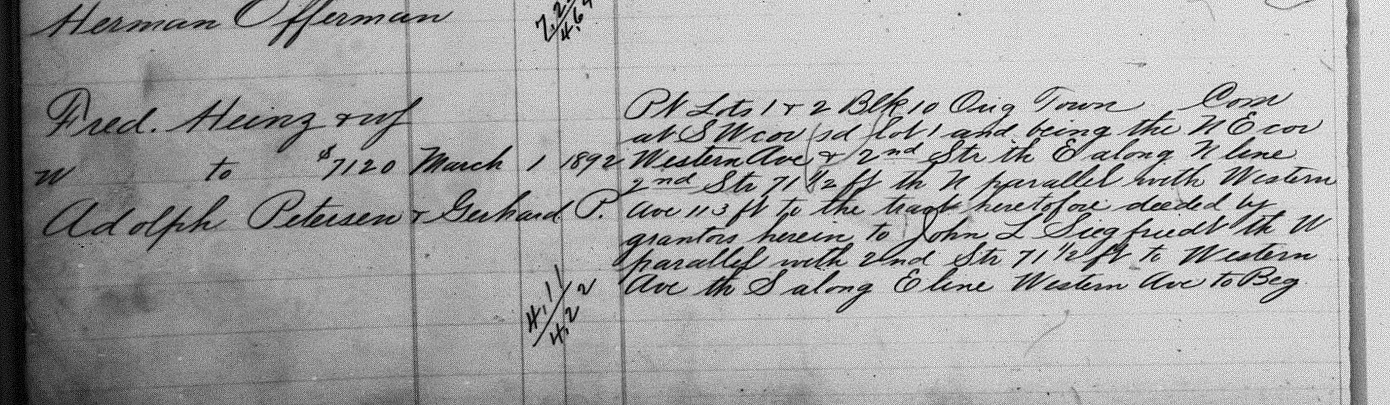 Herman Offerman
7.2
4.64
Fred. Heinz & wf
W to $7120 March 1 1892
Adolph Petersen & Gerhard P.
4.1/2
4.2
Pt Lots 1 & 2 Blk 10 Orig Town Com
at SW cor sd lot 1 and being the NE cor
Western Ave & 2nd Str th E along N line
2nd Str 71 1/2 ft th N parallel with Western
Ave 113 ft to the tract heretofore deeded by
grantors herein to John L Siegfriedt th W
parallel with 2nd Str 71 1/2 ft to Western
Ave th S along E line Western Ave to Beg.